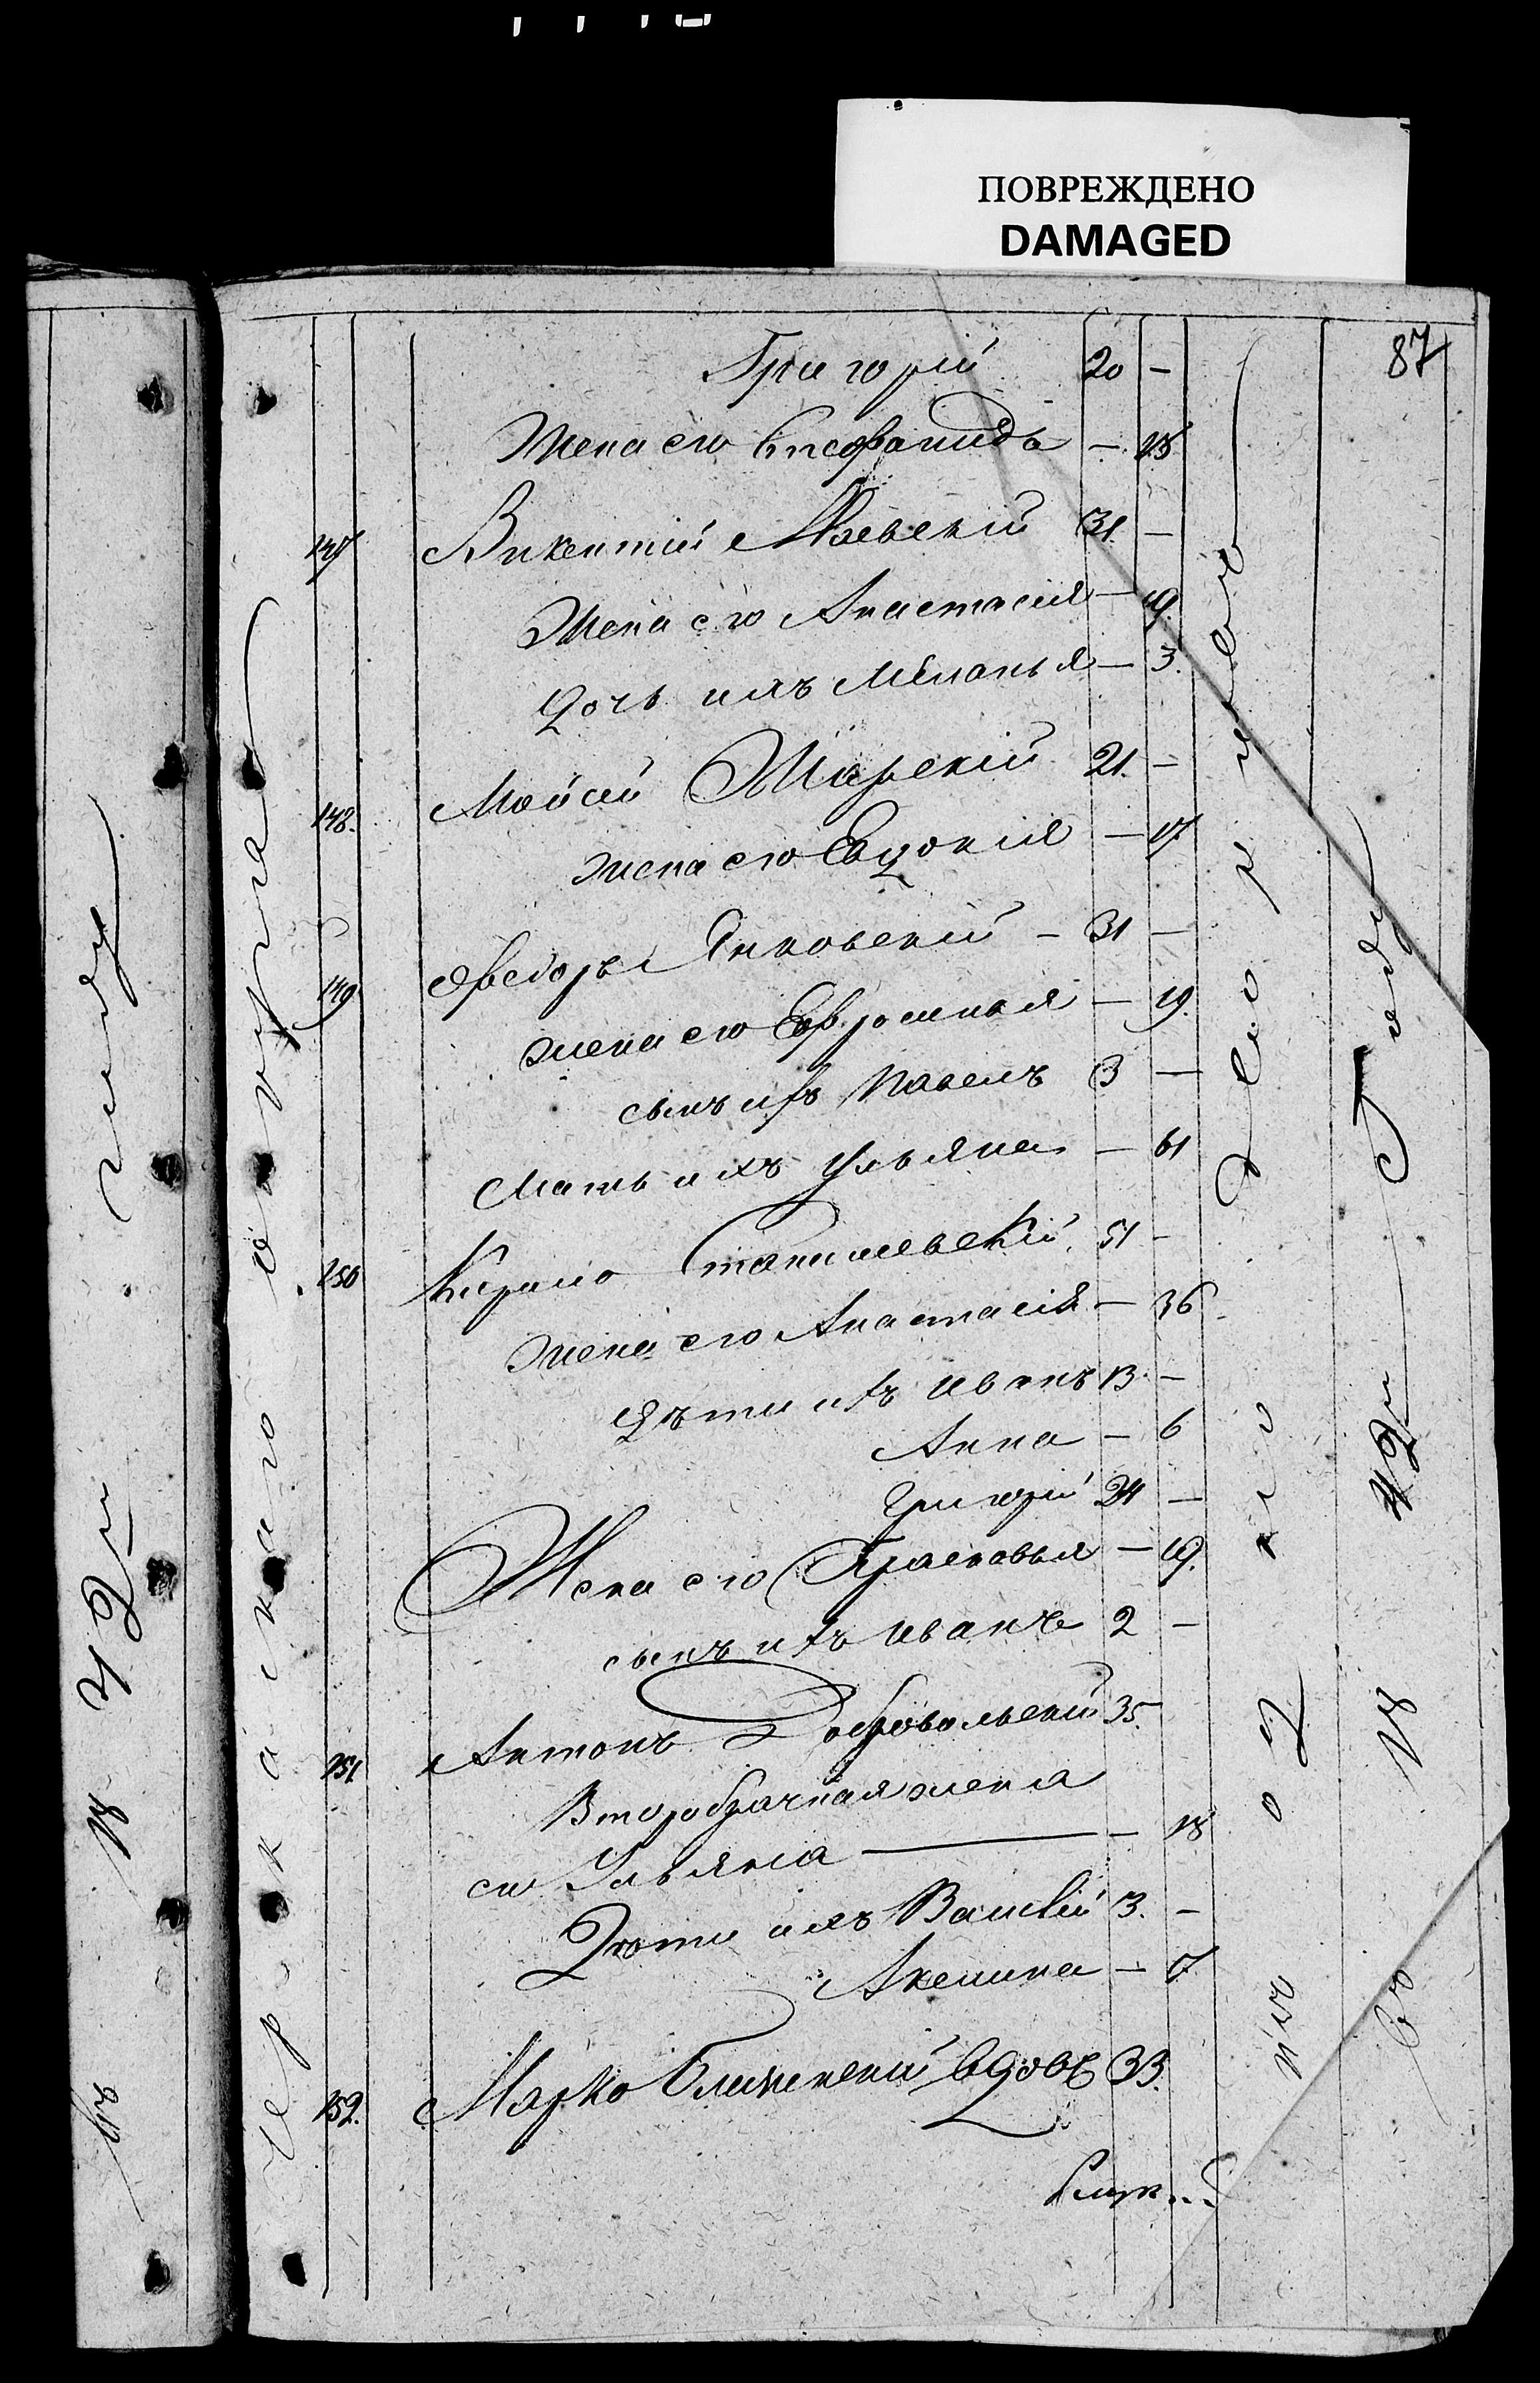 ПОВРЕЖДЕНО
DAMAGED
87
Григорій 20 —
Жена его Епсофанида — 18
147 Викентій Маевскій 31. —
Жена его Анастасія — 19.
Дочь ихъ Меланья — 3.
148. Мойсей Жарскій 21. —
жена его Евдокія — 17
149 Федоръ Янковскій — 31 —
жена его Евфросинья — 19.
сынъ ихъ Павелъ 3 —
Мать ихъ Ульяна — 61
150 Кирило Станишевскій 51 —
Жена его Анастасія — 36
Дѣти ихъ Иванъ 13 —
Анна — 6
Григорій 24 —
Жена его Прасковья — 19.
сынъ ихъ Иванъ 2 —
151. Антонъ Добровольскій 35.
Второбрачная жена
его Ульяна — 18
Дѣти ихъ Василій 3. —
Акелина — 7
152. Марко вдовъ 33.
въ 18 42 м году
Черкаскаго
въ 18 42 м Году